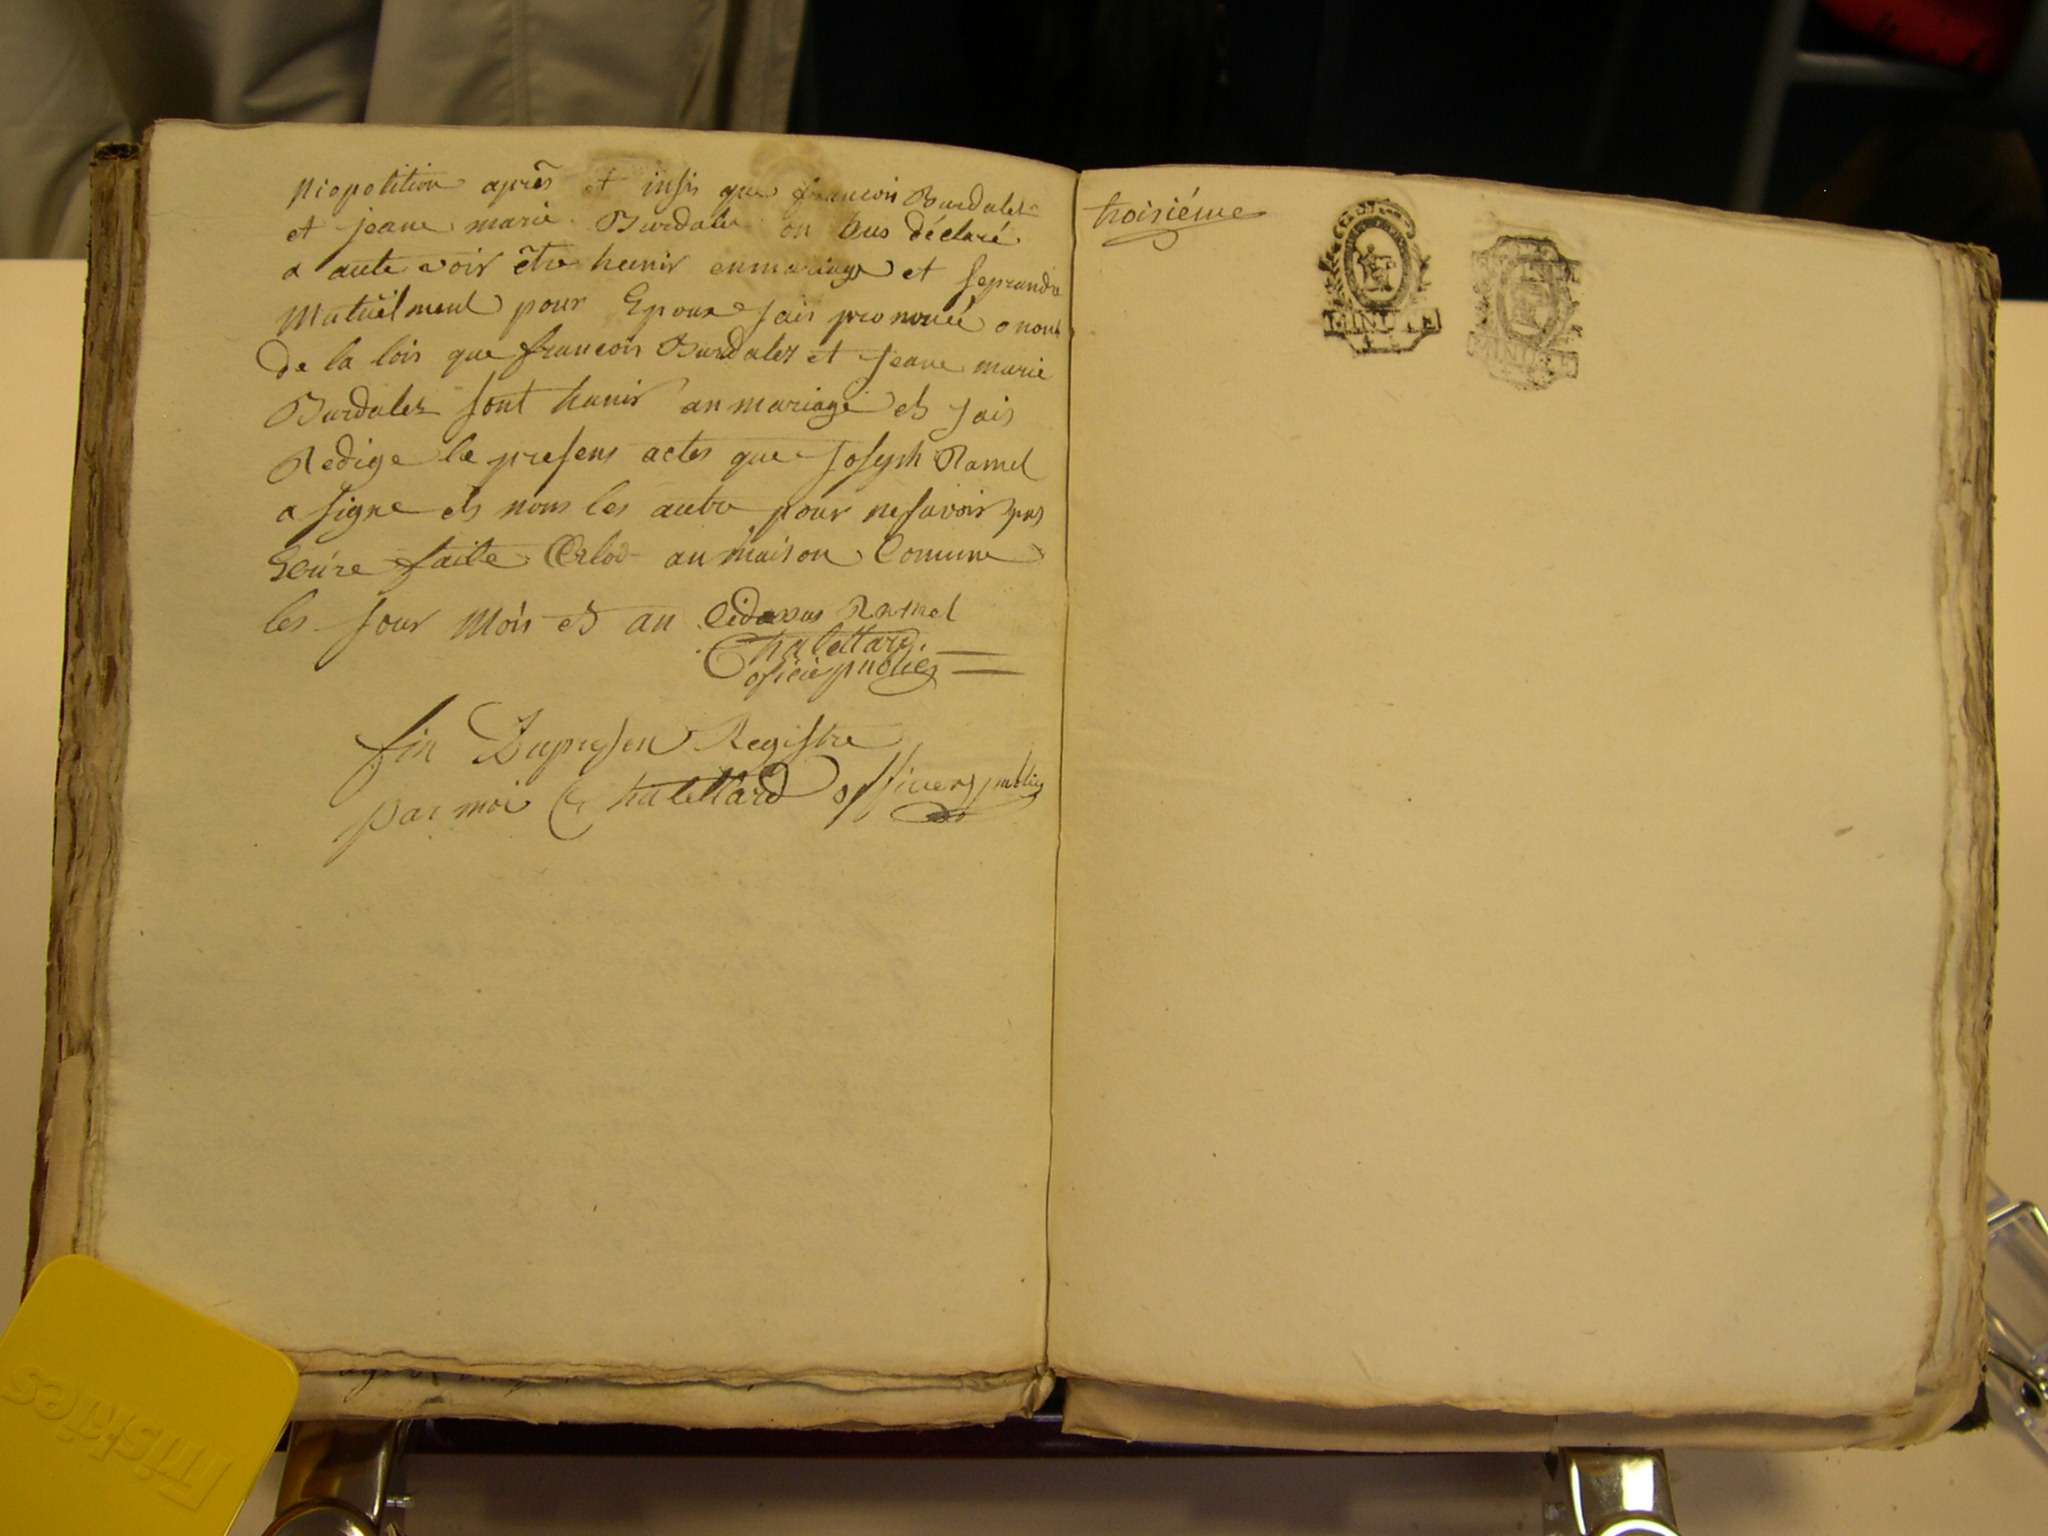 Niopolition aprês et insis que francois Burdalet
et jeane marie Burdalet on tous déclaré
a aute voir être hunir enmariage et seprandre
Mutuëlment pour Epoux jais prononcé o nom
de la lois que francois Burdalez et jeane marie
Burdalez sont hunir an mariage et jais
Redige le presens actes que joseph Ramel
a signe et nons les autre pour nesavoir pas
Ecrire faite an maison Comune
les jour Mois et an Cidesus Ramel
Chalettard
oficié publics
fin Dupresen Registre
par moi Chalettard officiers publics
troisiéme
Triskies